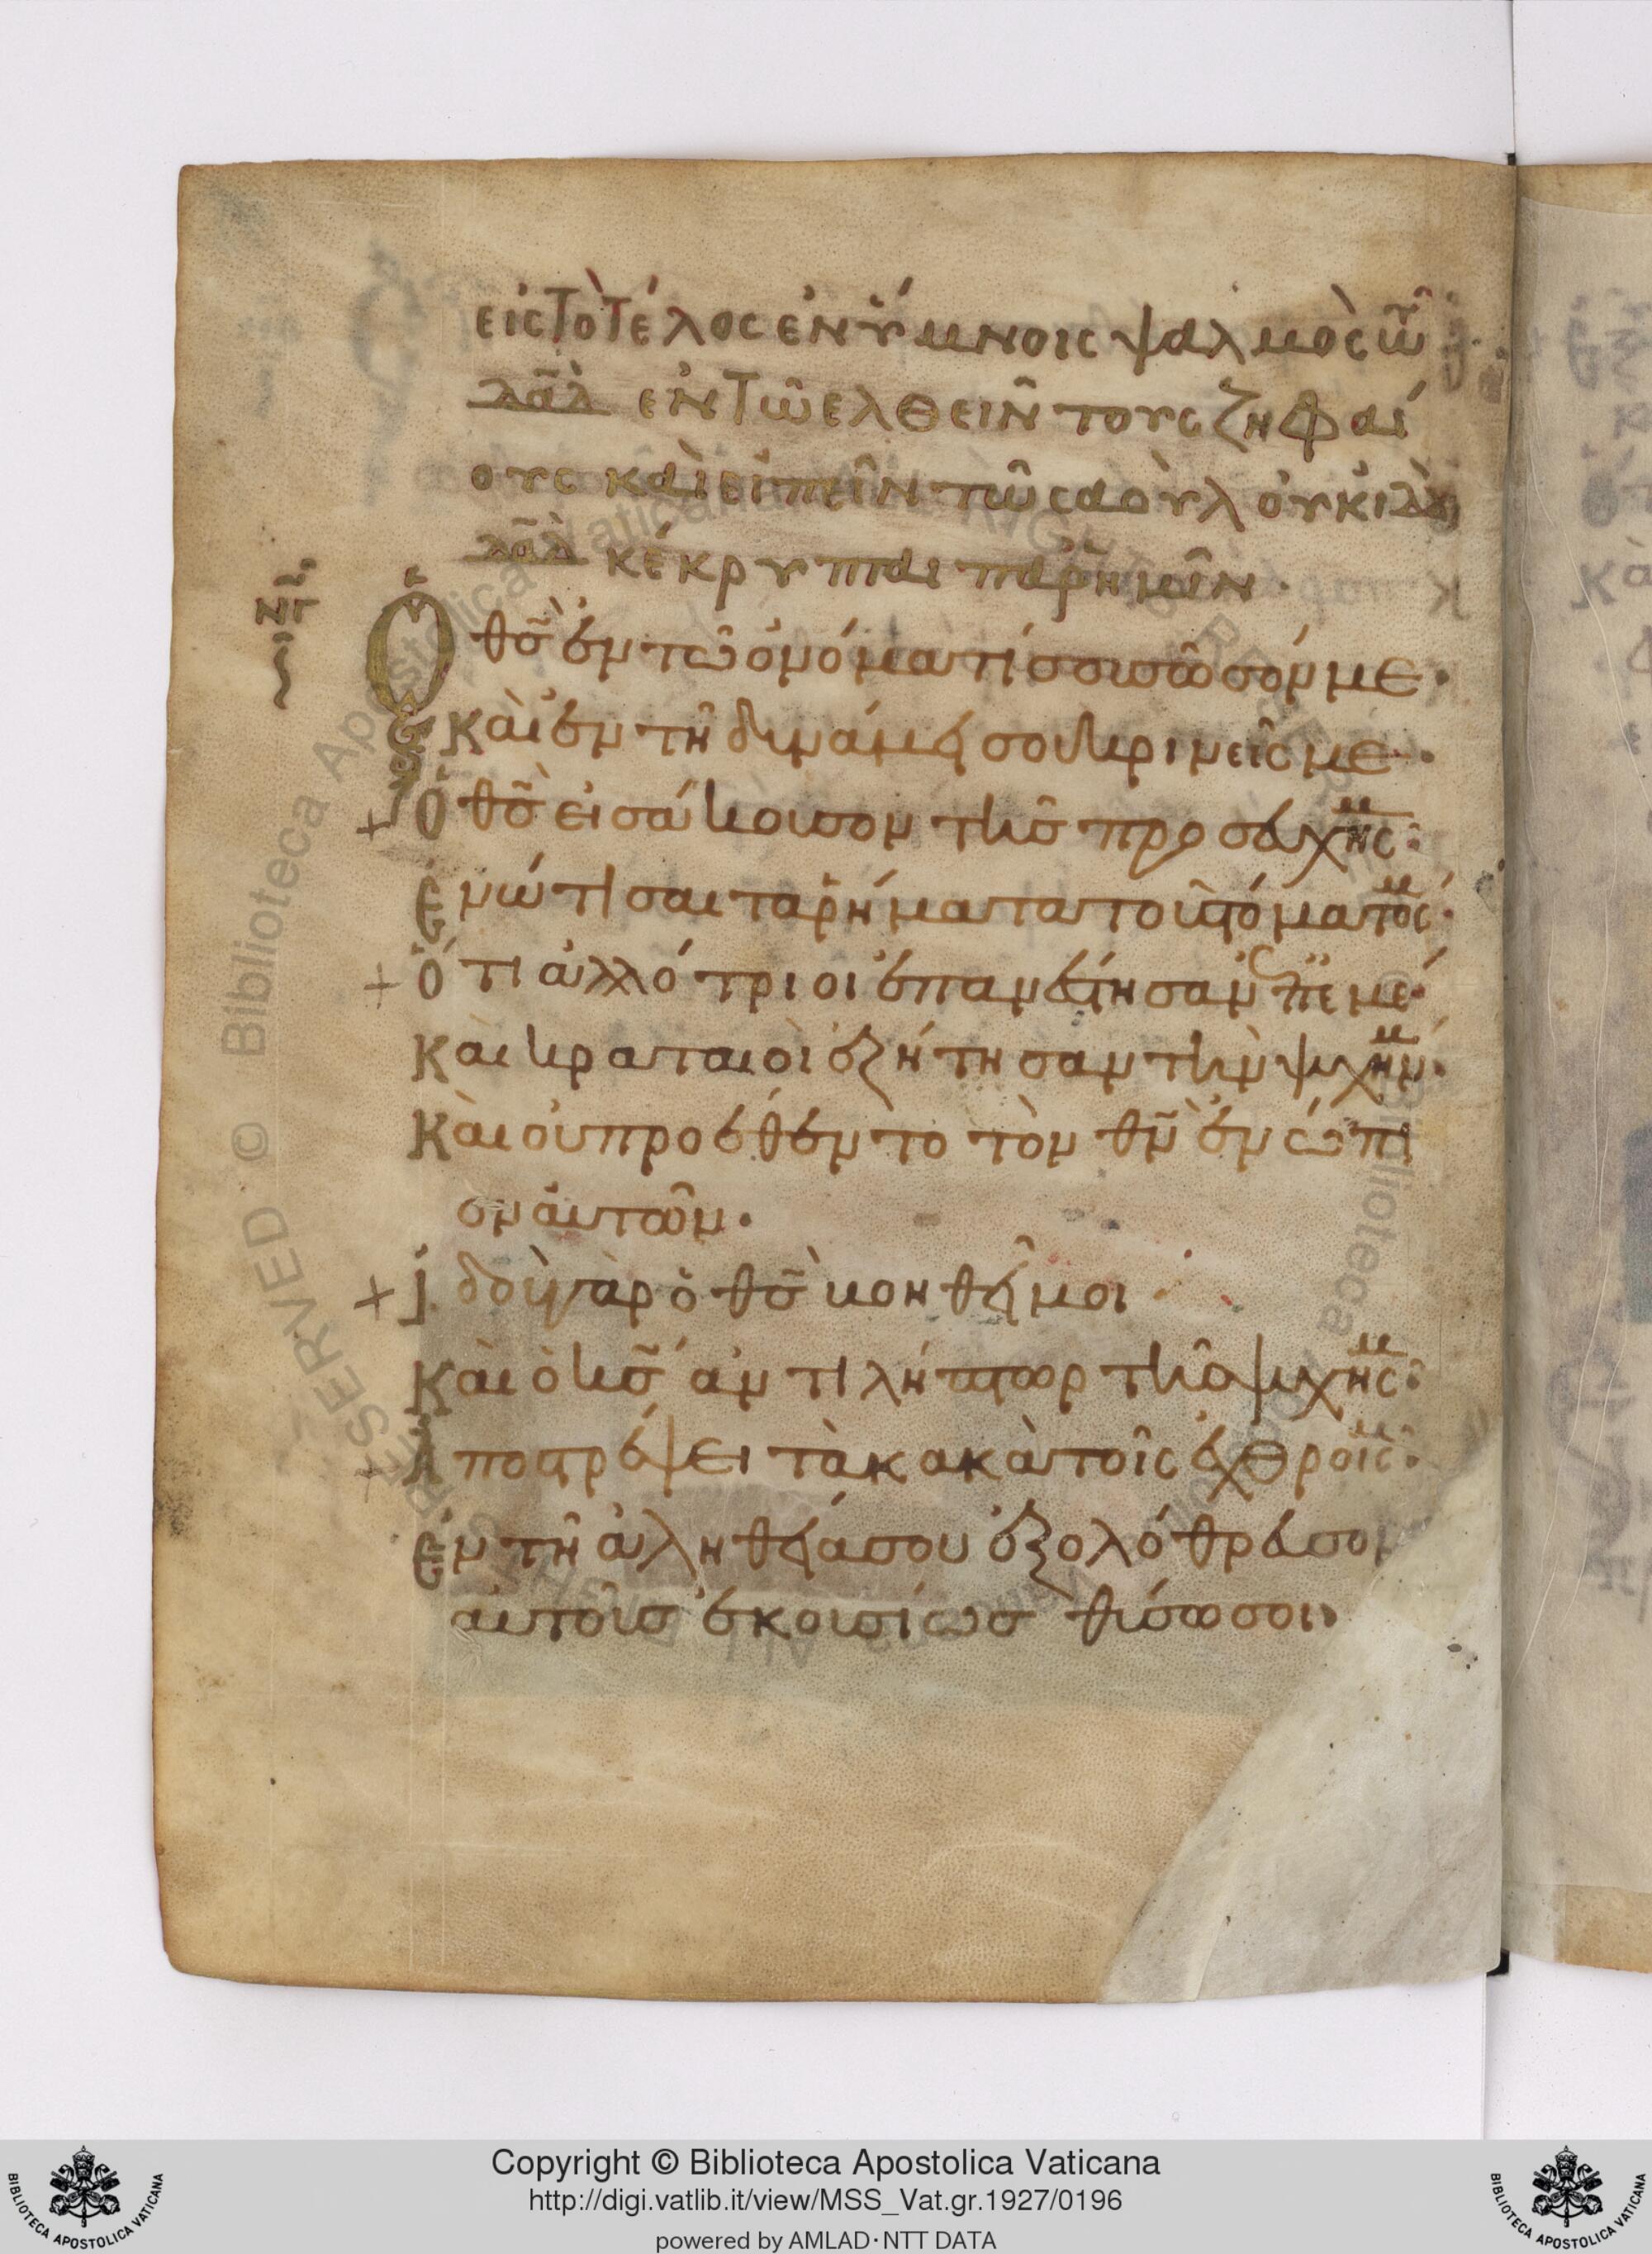 εἰς τὸ τέλος ἐν ὕμνοις ψαλμὸς τῶ
δᾱδ ἐν τῶ ελθεῖν τους ζηφαί
ους καὶ εἰπεῖν τῶ σαοὺλ οὐκ ἰδοὺ
δᾱδ κέκρυπται παρ ἡμῖν·
νγ
Ὁ θς̄ ἐν τῶ ὀνόματί σου σῶσόν με·
καὶ ἐν τῆ δυνάμει σου κρινεῖς με·
Ὁ θς̄ εἰσάκουσον τῆς προσευχῆς μ:
ἐνώτισαι τα ῥήματα τοῦ στόματός μ·
Ὅτι ἀλλότριοι ἐπανέστησαν ἐπ ἐμέ·
Καὶ κραταιοὶ ἐζήτησαν τὴν ψυχήν μ·
Καὶ οὐ προέθεντο τὸν θν̄ ἐνώπι
ον ἀυτῶν·
Ἰδοὺ γὰρ ὁ θς̄ βοηθεῖ μοι
Καὶ ὁ κς̄ ἀντιλήπτωρ τῆς ψυχῆς μ:
Ἀποστρέψει τὰ κακὰ τοῖς ἐχθροῖς μ:
Ἐν τῆ ἀληθεία σου ἐξολόθρευσον
αὐτοὺς ἑκουσίως θύσω σοι
Copyright © Biblioteca Apostolica Vaticana
http://digi.vatlib.it/view/MSS_Vat.gr.1927/0196
powered by AMLAD·NTT DATA
BIBLIOTECA APOSTOLICA VATICANA
BIBLIOTECA APOSTOLICA VATICANA